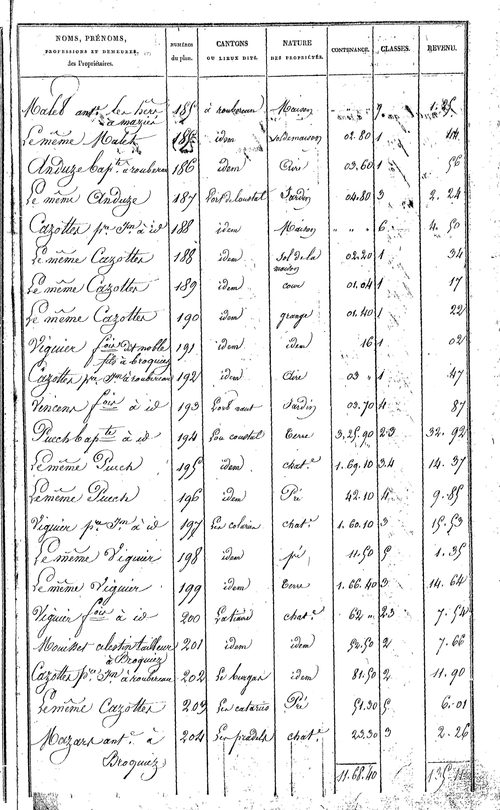 NOMS, PRÉNOMS, PROFESSIONS ET DEMEURES, des Propriétaires. NUMÉROS du plan. CANTONS OU LIEUX DITS. NATURE DES PROPRIÉTÉS. CONTENANCE. CLASSES. REVENU.
Malet antne 185 à rouberau Maison 7 1.25
à mazies
Le même Malet idem sol de maison 02.80 1 14
Anduze bapte à rouberau 186 idem Aire 03.60 1 56
Le même Anduze 187 L'ort de l'oustal Jardin 04.80 3 2.24
Cazottes prre Jn à id 188 idem Maison " " " 6 4.50
Le même Cazottes 188 idem sol de la 02.20 1 34
maison
Le même Cazottes 189 idem cour 01.04 1 17
Le même Cazottes 190 idem grange 01.40 1 22
Viguier fois dit noble 191 idem idem 16 1 02
fils à broquiez
Cazottes prre Jn à rouberau 192 idem Aire 03 " 1 47
Vincens fois à id 193 L'ort naut Jardin 03.70 4 87
Puech bapte à id 194 Lou coustal Terre 3.25.90 2.3 32.92
Le même Puech 195 idem chatre 1.69.10 3.4 14.37
Le même Puech 196 idem Pré 42.10 4 9.85
Viguier prre Jn à id 197 Les colaries chatre 1.60.10 3 15.53
Le même Viguier 198 idem pré 11.50 5 1.35
Le même Viguier 199 idem Terre 1.66.40 3 14.64
Viguier fois à id 200 chatre 62 " 2.3 7.54
Mouisset celestin tailleur 201 idem idem 54.50 2 7.66
à Broquiez
Cazottes prre Jn à rouberau 202 Le burgas idem 81.50 2 11.90
Le même Cazottes 203 Les cataries Pré 51.30 5 6.01
Mazars antne à 204 Les pradels chatre 23.30 3 2.26
Broquiez
11.68.40